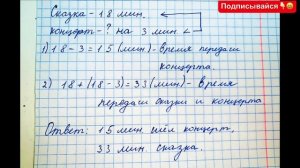 Подписывайся
Сказка - 18 мин.
концерт - ? на 3 мин
1) 18 - 3 = 15 (мин) - время передачи
концерта.
2) 18 + (18 - 3) = 33 (мин) - время
передачи сказки и концерта
Ответ: 15 мин шёл концерт,
33 мин. сказка.